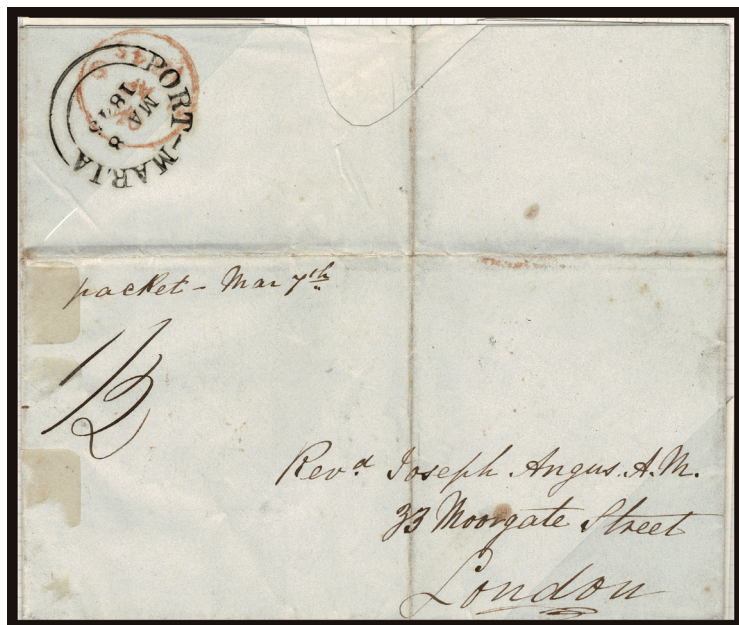 PORT-MARIA
MA 8
184
packet - Mar 7th
1/2
Revd Joseph Angus. A.M.
33 Moorgate Street
London